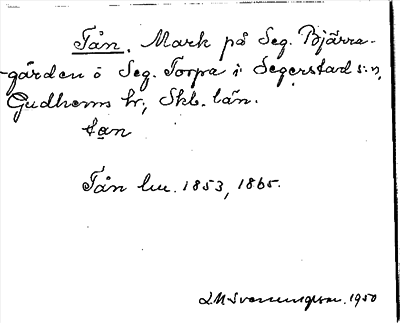 Tån. Mark på Seg. Bjärra-
gården o Seg. Torpa i Segerstad s:n,
Gudhems hr, Skb. län.
tan
Tån lm. 1853, 1865.
1950